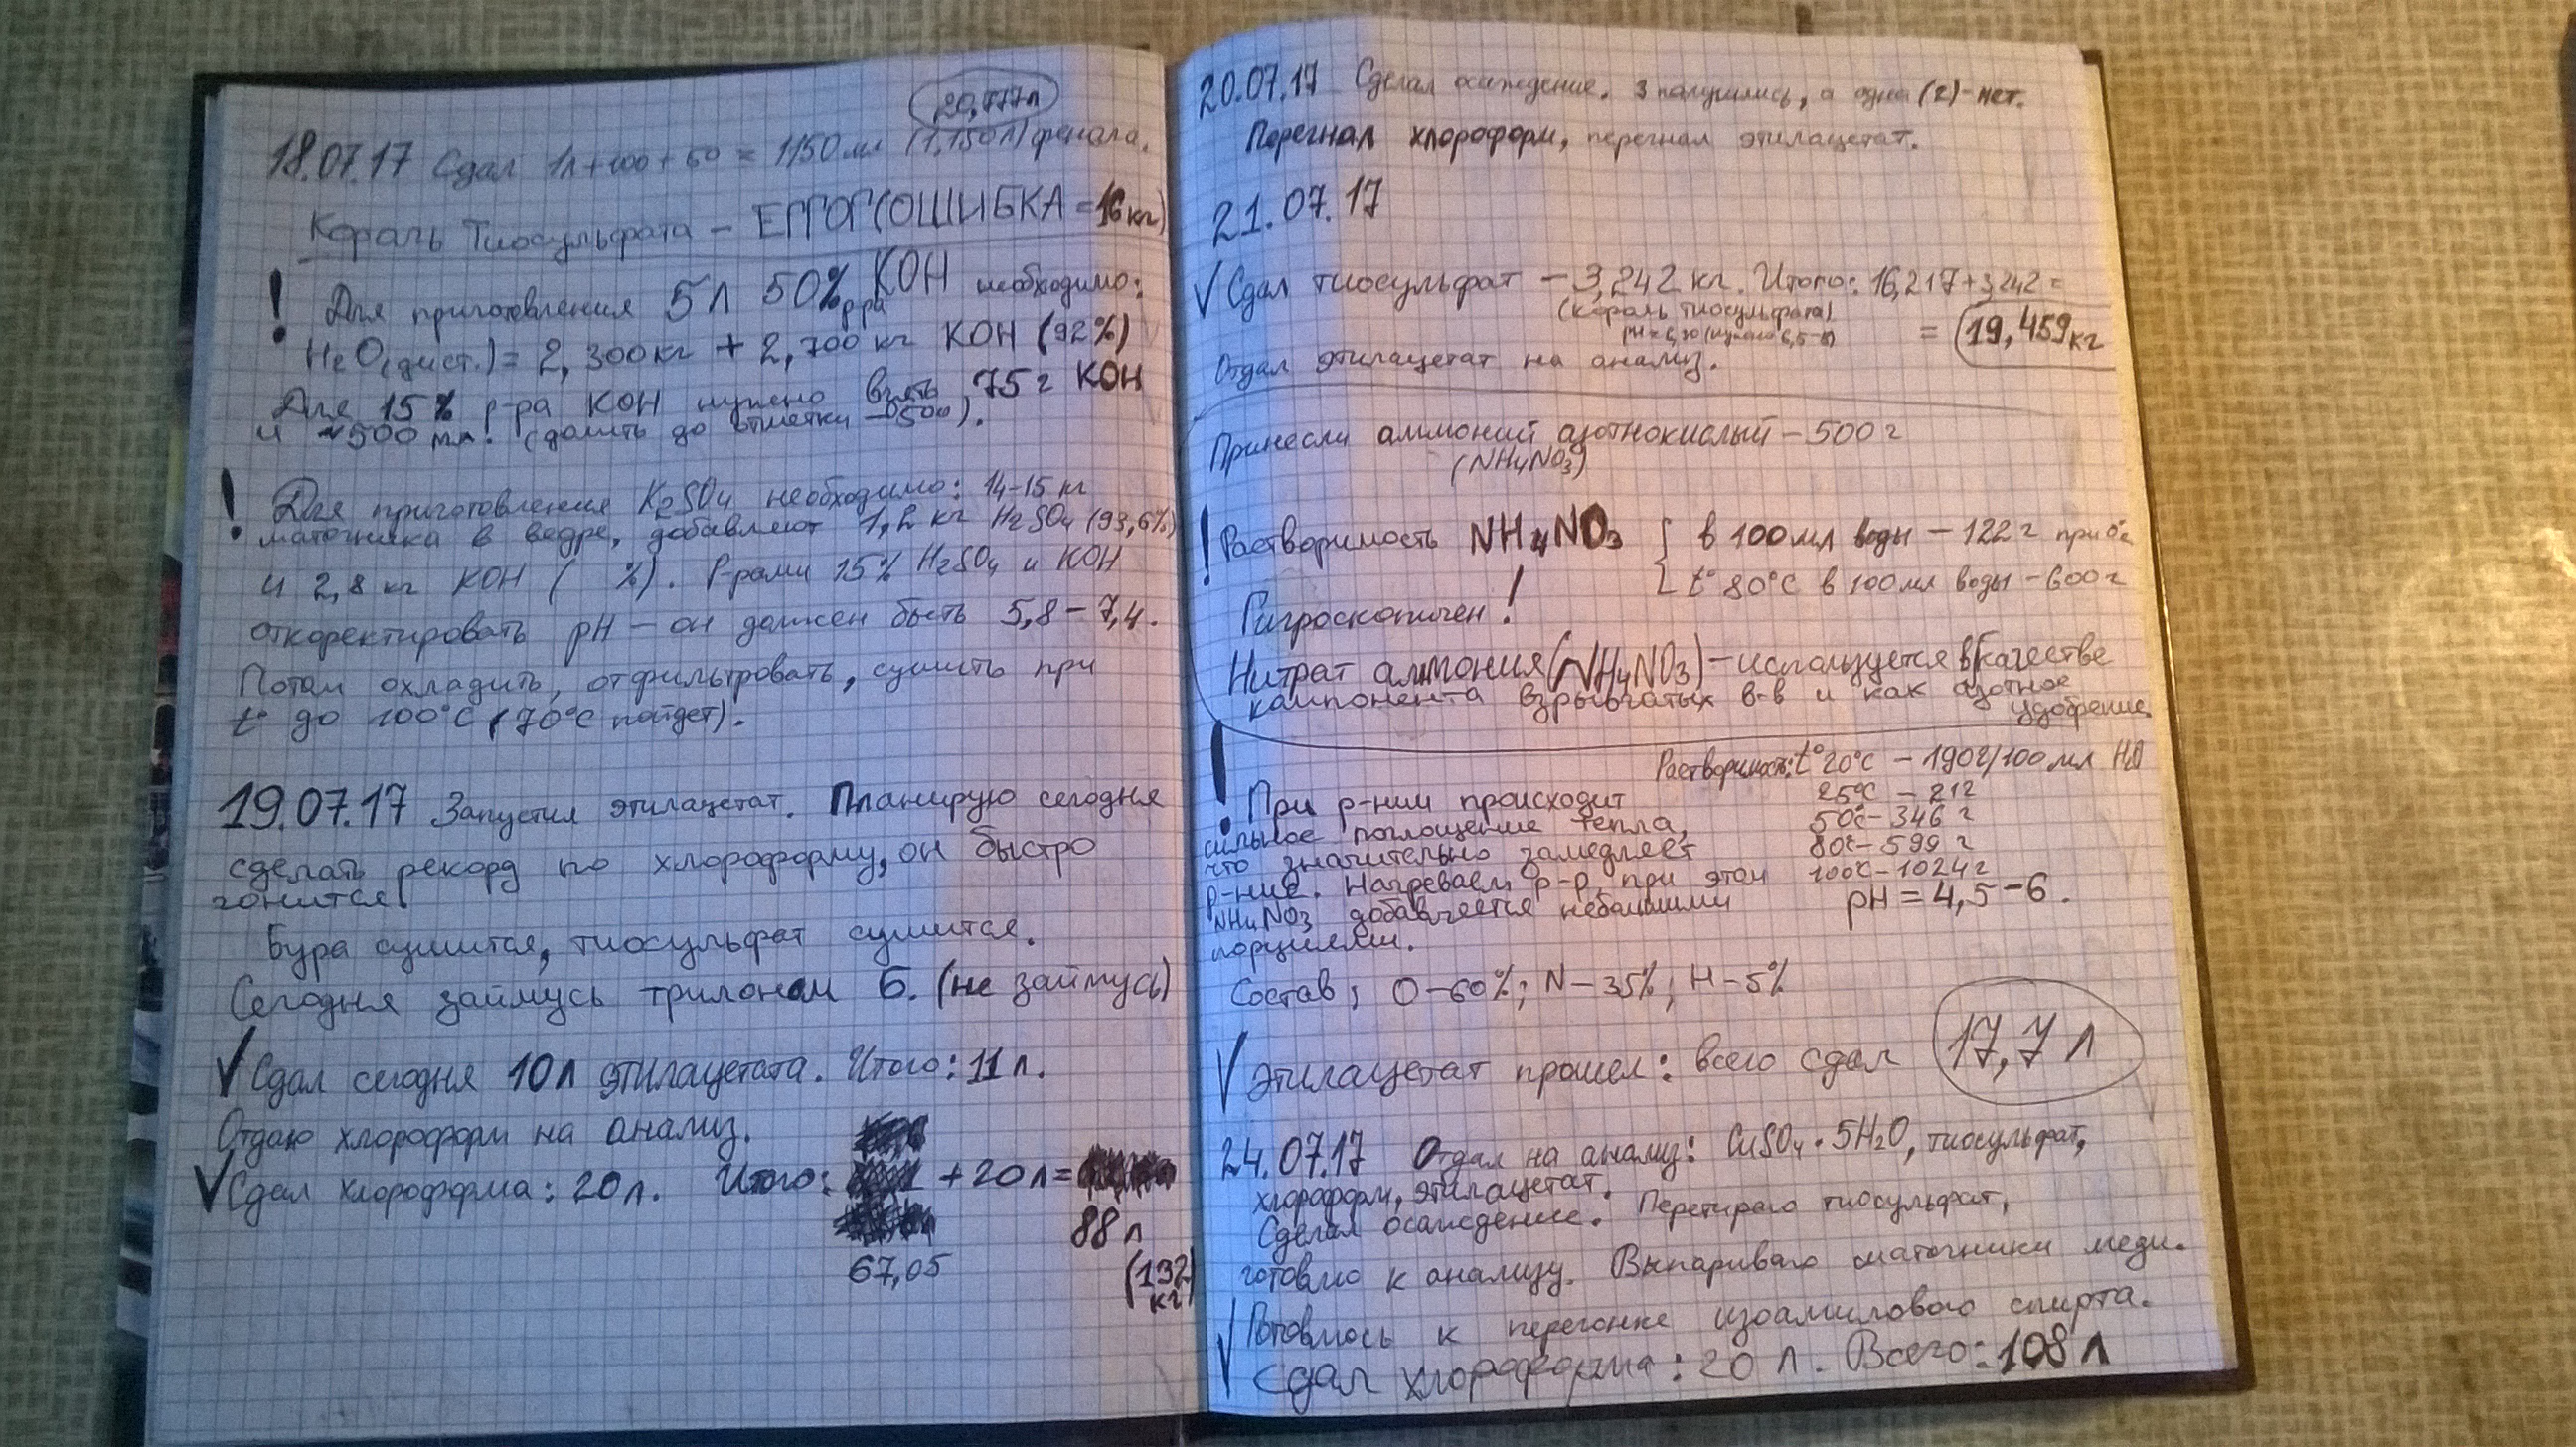 20,777л
18.07.17 Сдал 1л+100+50 = 1150 мл (1,150л) фенола.
Король Тиосульфата – ЕГГОГ(ОШИБКА =16кг)
! Для приготовления 5л 50% р-ра KOH необходимо:
H2O(дист.)= 2,300кг + 2,700кг KOH (92%)
Для 15% р-ра KOH нужно взять 75г KOH
и ~500 мл. (долить до отметки –500).
! Для приготовления K2SO4 необходимо: 14-15 кг
маточника в ведре, добавляют 1,2 кг H2SO4 (93,6%)
и 2,8 кг KOH ( %). Р-рами 15% H2SO4 и KOH
откоректировать pH – он должен быть 5,8 – 7,4.
Потом охладить, отфильтровать, сушить при
t° до 100°C (70°C пойдет).
19.07.17 Запустил этилацетат. Планирую сегодня
сделать рекорд по хлороформу, он быстро
гонится.
Бура сушится, тиосульфат сушится.
Сегодня займусь трилоном Б. (не займусь)
√ Сдал сегодня 10л этилацетата. Итого: 11л.
Отдаю хлороформ на анализ.
√ Сдал хлороформа: 20л. Итого: + 20л =
88л
67,05
(132
кг)
20.07.17 Сделал осаждение. 3 получились, а одна (2)-нет.
Перегнал хлороформ, перегнал этилацетат.
21.07.17
√ Сдал тиосульфат – 3,242 кг. Итого: 16,217+3,242=
(король тиосульфата)
= 19,459кг
Отдал этилацетат на анализ.
Принесли аммоний азотнокислый – 500г
(NH4NO3)
! Растворимость NH4NO3 { в 100мл воды – 122г при 0°C
t° 80°C в 100мл воды – 600г
Гигроскопичен!
Нитрат аммония(NH4NO3) – используется в качестве
компонента взрывчатых в-в и как азотное
удобрение
Растворимость: t°20°C – 190г/100мл H2O
! При р-нии происходит 25°C – 212
сильное поглощение тепла, 50°C – 346 г
что значительно замедляет 80°C – 599 г
р-ние. Нагреваем р-р, при этом 100°C – 1024г
NH4NO3 добавляется небольшими pH = 4,5 – 6.
порциями.
Состав; O – 60%; N – 35%; H – 5%
√ этилацетат прошел: всего сдал 17,7л
24.07.17 Отдал на анализ: CuSO4 · 5H2O, тиосульфат,
хлороформ, этилацетат.
Сделал осаждение. Перетираю тиосульфат,
готовлю к анализу. Выпариваю маточники меди.
√ Готовлюсь к перегонке изоамилового спирта.
Сдал хлороформа: 20 л. Всего: 108 л